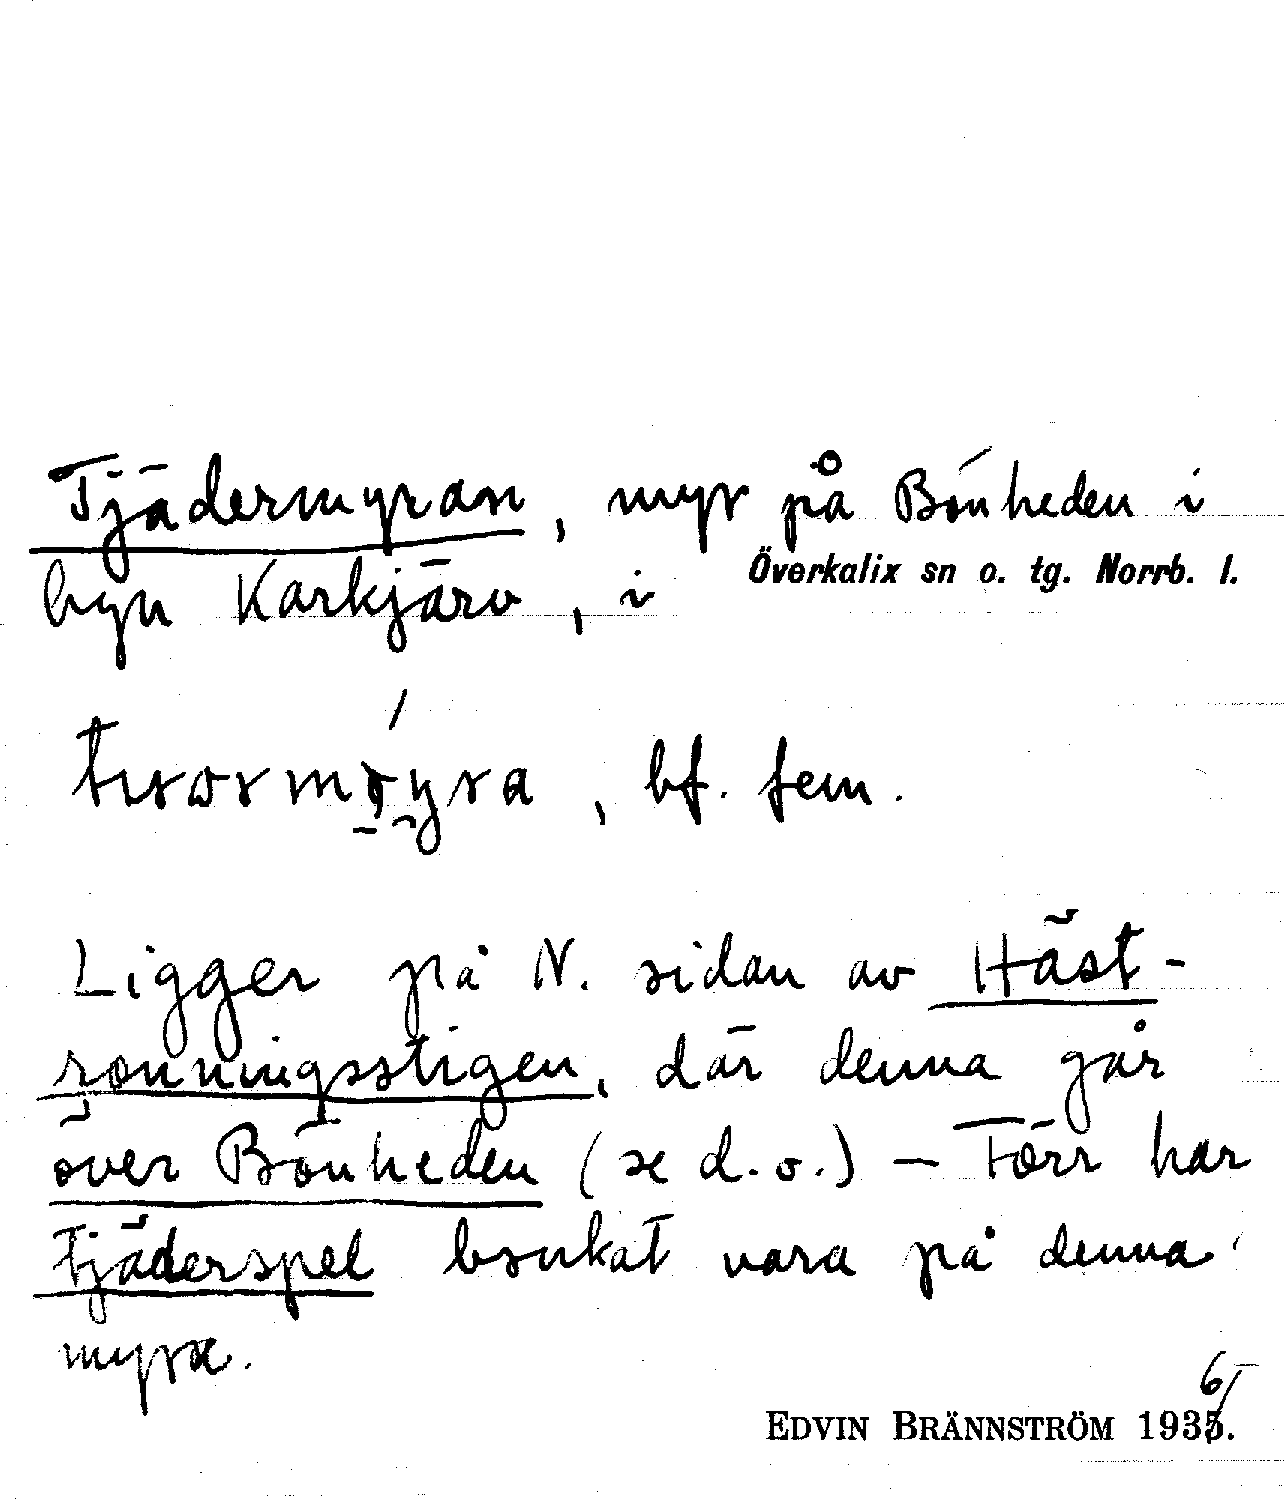 Tjädermyran, myr på Bönheden i
Överkalix sn o. tg. Norrb. l.
byn Karkjärv, i
bf. fem.
Ligger på N. sidan av Häst-
rönningsstigen, där denna går
över Bönheden (se d.o.) – Förr har
tjäderspel brukat vara på denna
myra.
EDVIN BRÄNNSTRÖM 1936.